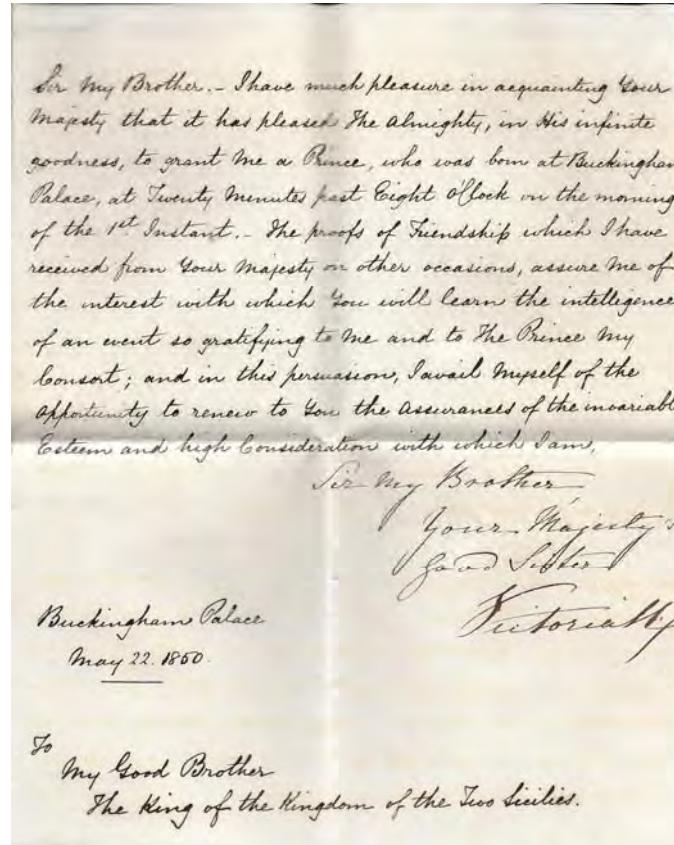 Sir My Brother. - I have much pleasure in acquainting Your
Majesty that it has pleased The Almighty, in His infinite
goodness, to grant Me a Prince, who was born at Buckingham
Palace, at Twenty Minutes past Eight O'Clock on the morning
of the 1st Instant. - The proofs of Friendship which I have
received from Your Majesty on other occasions, assure Me of
the interest with which You will learn the intelligence
of an event so gratifying to Me and to The Prince My
Consort; and in this persuasion, I avail Myself of the
opportunity to renew to You the Assurances of the invariable
Esteem and high Consideration with which I am,
Sir My Brother
Your Majesty's
Good Sister
Victoria R
Buckingham Palace
May 22. 1850.
To
My Good Brother
The King of the Kingdom of the Two Sicilies.